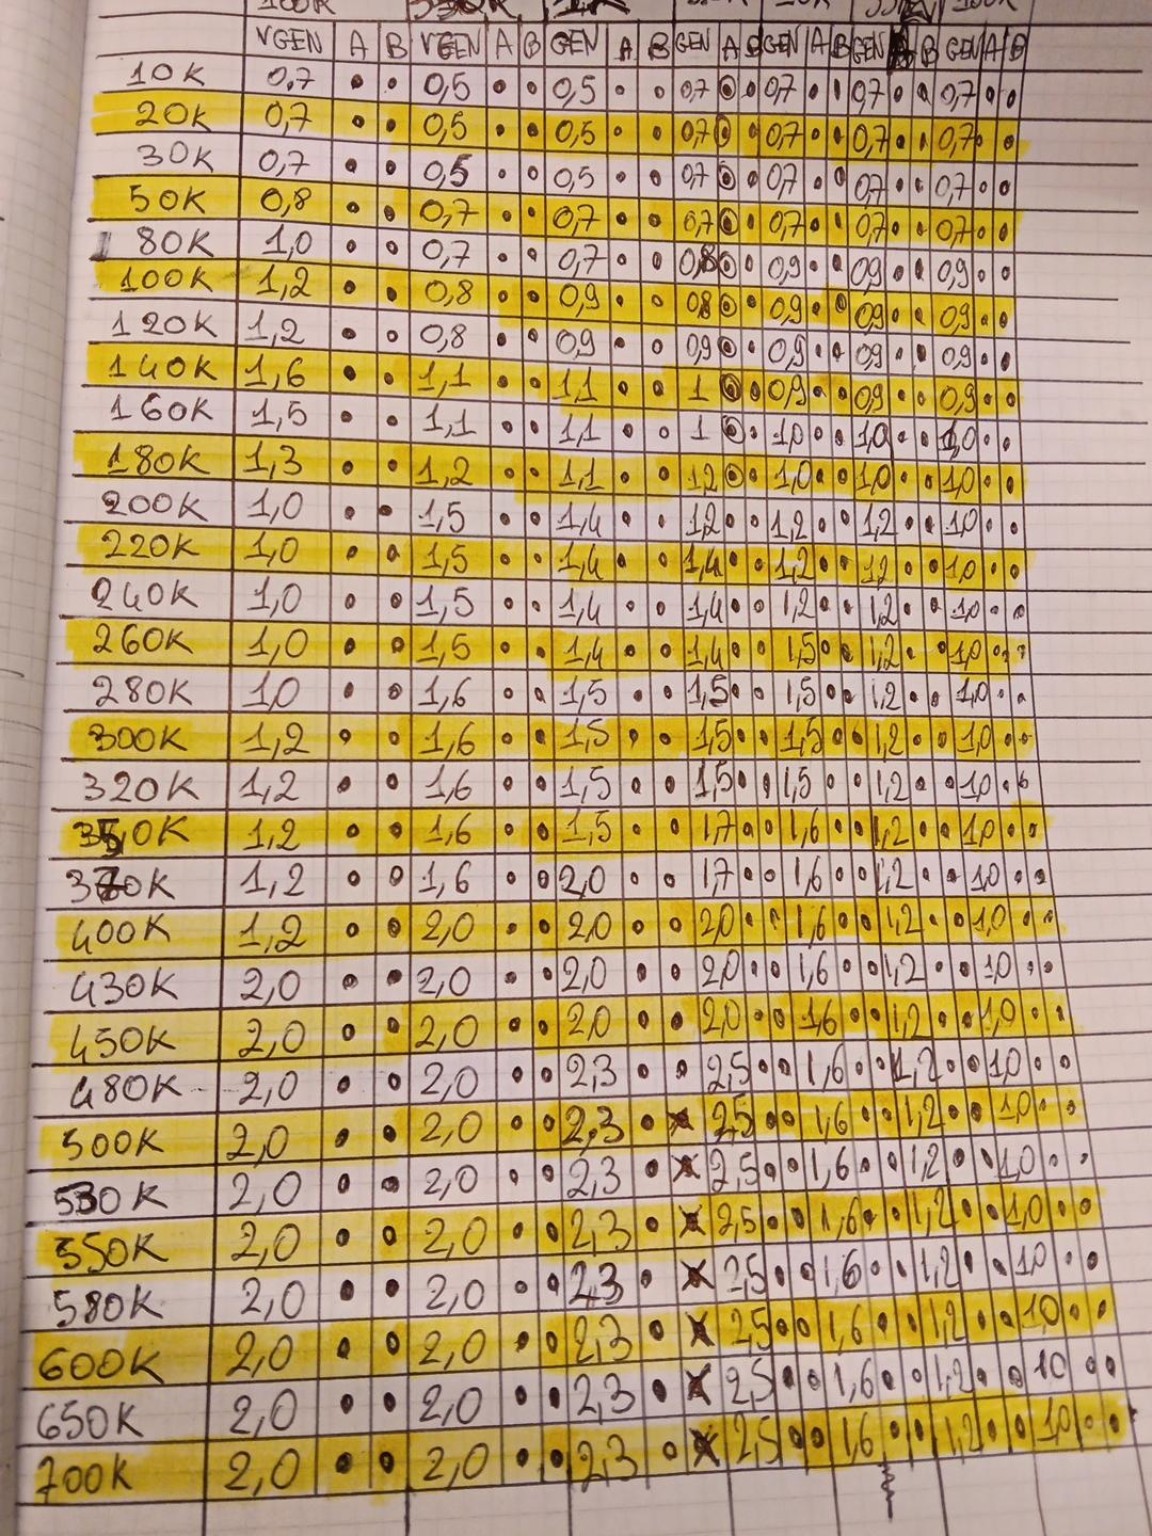 100K 330K 1K 10K 100K
VGEN A B VGEN A B GEN A B GEN A B GEN A B GEN B GEN A B
10K 0,7 • • 0,5 • • 0,5 • • 0,7 • • 0,7 • • 0,7 • • 0,7 • •
20K 0,7 • • 0,5 • • 0,5 • • 0,7 • • 0,7 • • 0,7 • • 0,7 • •
30K 0,7 • • 0,5 • • 0,5 • • 0,7 • • 0,7 • • 0,7 • • 0,7 • •
50K 0,8 • • 0,7 • • 0,7 • • 0,7 • • 0,7 • • 0,7 • • 0,7 • •
80K 1,0 • • 0,7 • • 0,7 • • 0,8 • • 0,9 • • 0,9 • • 0,9 • •
100K 1,2 • • 0,8 • • 0,9 • • 0,8 • • 0,9 • • 0,9 • • 0,9 • •
120K 1,2 • • 0,8 • • 0,9 • • 0,9 • • 0,9 • • 0,9 • • 0,9 • •
140K 1,6 • • 1,1 • • 1,1 • • 1 • • 0,9 • • 0,9 • • 0,9 • •
160K 1,5 • • 1,1 • • 1,1 • • 1 • • 1,0 • • 1,0 • • 1,0 • •
180K 1,3 • • 1,2 • • 1,1 • • 1,2 • • 1,0 • • 1,0 • • 1,0 • •
200K 1,0 • • 1,5 • • 1,4 • • 1,2 • • 1,2 • • 1,2 • • 1,0 • •
220K 1,0 • • 1,5 • • 1,4 • • 1,4 • • 1,2 • • 1,2 • • 1,0 • •
240K 1,0 • • 1,5 • • 1,4 • • 1,4 • • 1,2 • • 1,2 • • 1,0 • •
260K 1,0 • • 1,5 • • 1,4 • • 1,4 • • 1,5 • • 1,2 • • 1,0 • •
280K 1,0 • • 1,6 • • 1,5 • • 1,5 • • 1,5 • • 1,2 • • 1,0 • •
300K 1,2 • • 1,6 • • 1,5 • • 1,5 • • 1,5 • • 1,2 • • 1,0 • •
320K 1,2 • • 1,6 • • 1,5 • • 1,5 • • 1,5 • • 1,2 • • 1,0 • •
350K 1,2 • • 1,6 • • 1,5 • • 1,7 • • 1,6 • • 1,2 • • 1,0 • •
370K 1,2 • • 1,6 • • 2,0 • • 1,7 • • 1,6 • • 1,2 • • 1,0 • •
400K 1,2 • • 2,0 • • 2,0 • • 2,0 • • 1,6 • • 1,2 • • 1,0 • •
430K 2,0 • • 2,0 • • 2,0 • • 2,0 • • 1,6 • • 1,2 • • 1,0 • •
450K 2,0 • • 2,0 • • 2,0 • • 2,0 • • 1,6 • • 1,2 • • 1,0 • •
480K 2,0 • • 2,0 • • 2,3 • • 2,5 • • 1,6 • • 1,2 • • 1,0 • •
500K 2,0 • • 2,0 • • 2,3 • x 2,5 • • 1,6 • • 1,2 • • 1,0 • •
530K 2,0 • • 2,0 • • 2,3 • x 2,5 • • 1,6 • • 1,2 • • 1,0 • •
550K 2,0 • • 2,0 • • 2,3 • x 2,5 • • 1,6 • • 1,2 • • 1,0 • •
580K 2,0 • • 2,0 • • 2,3 • x 2,5 • • 1,6 • • 1,2 • • 1,0 • •
600K 2,0 • • 2,0 • • 2,3 • x 2,5 • • 1,6 • • 1,2 • • 1,0 • •
650K 2,0 • • 2,0 • • 2,3 • x 2,5 • • 1,6 • • 1,2 • • 10 • •
700K 2,0 • • 2,0 • • 2,3 • x 2,5 • • 1,6 • • 1,2 • • 1,0 • •